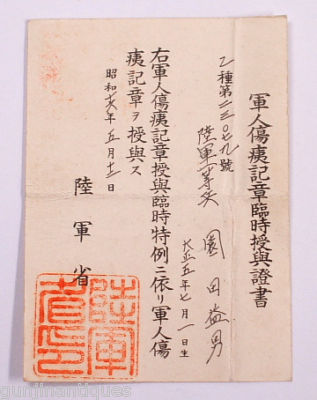 軍人傷痍記章臨時授與證書
乙種第二三〇七九號
陸軍一等兵 園田益男
大正五年七月一日生
右軍人傷痍記章授與臨時特例ニ依リ軍人傷
痍記章ヲ授與ス
昭和十六年五月十二日
陸軍省
陸軍省印
gunjinantiques